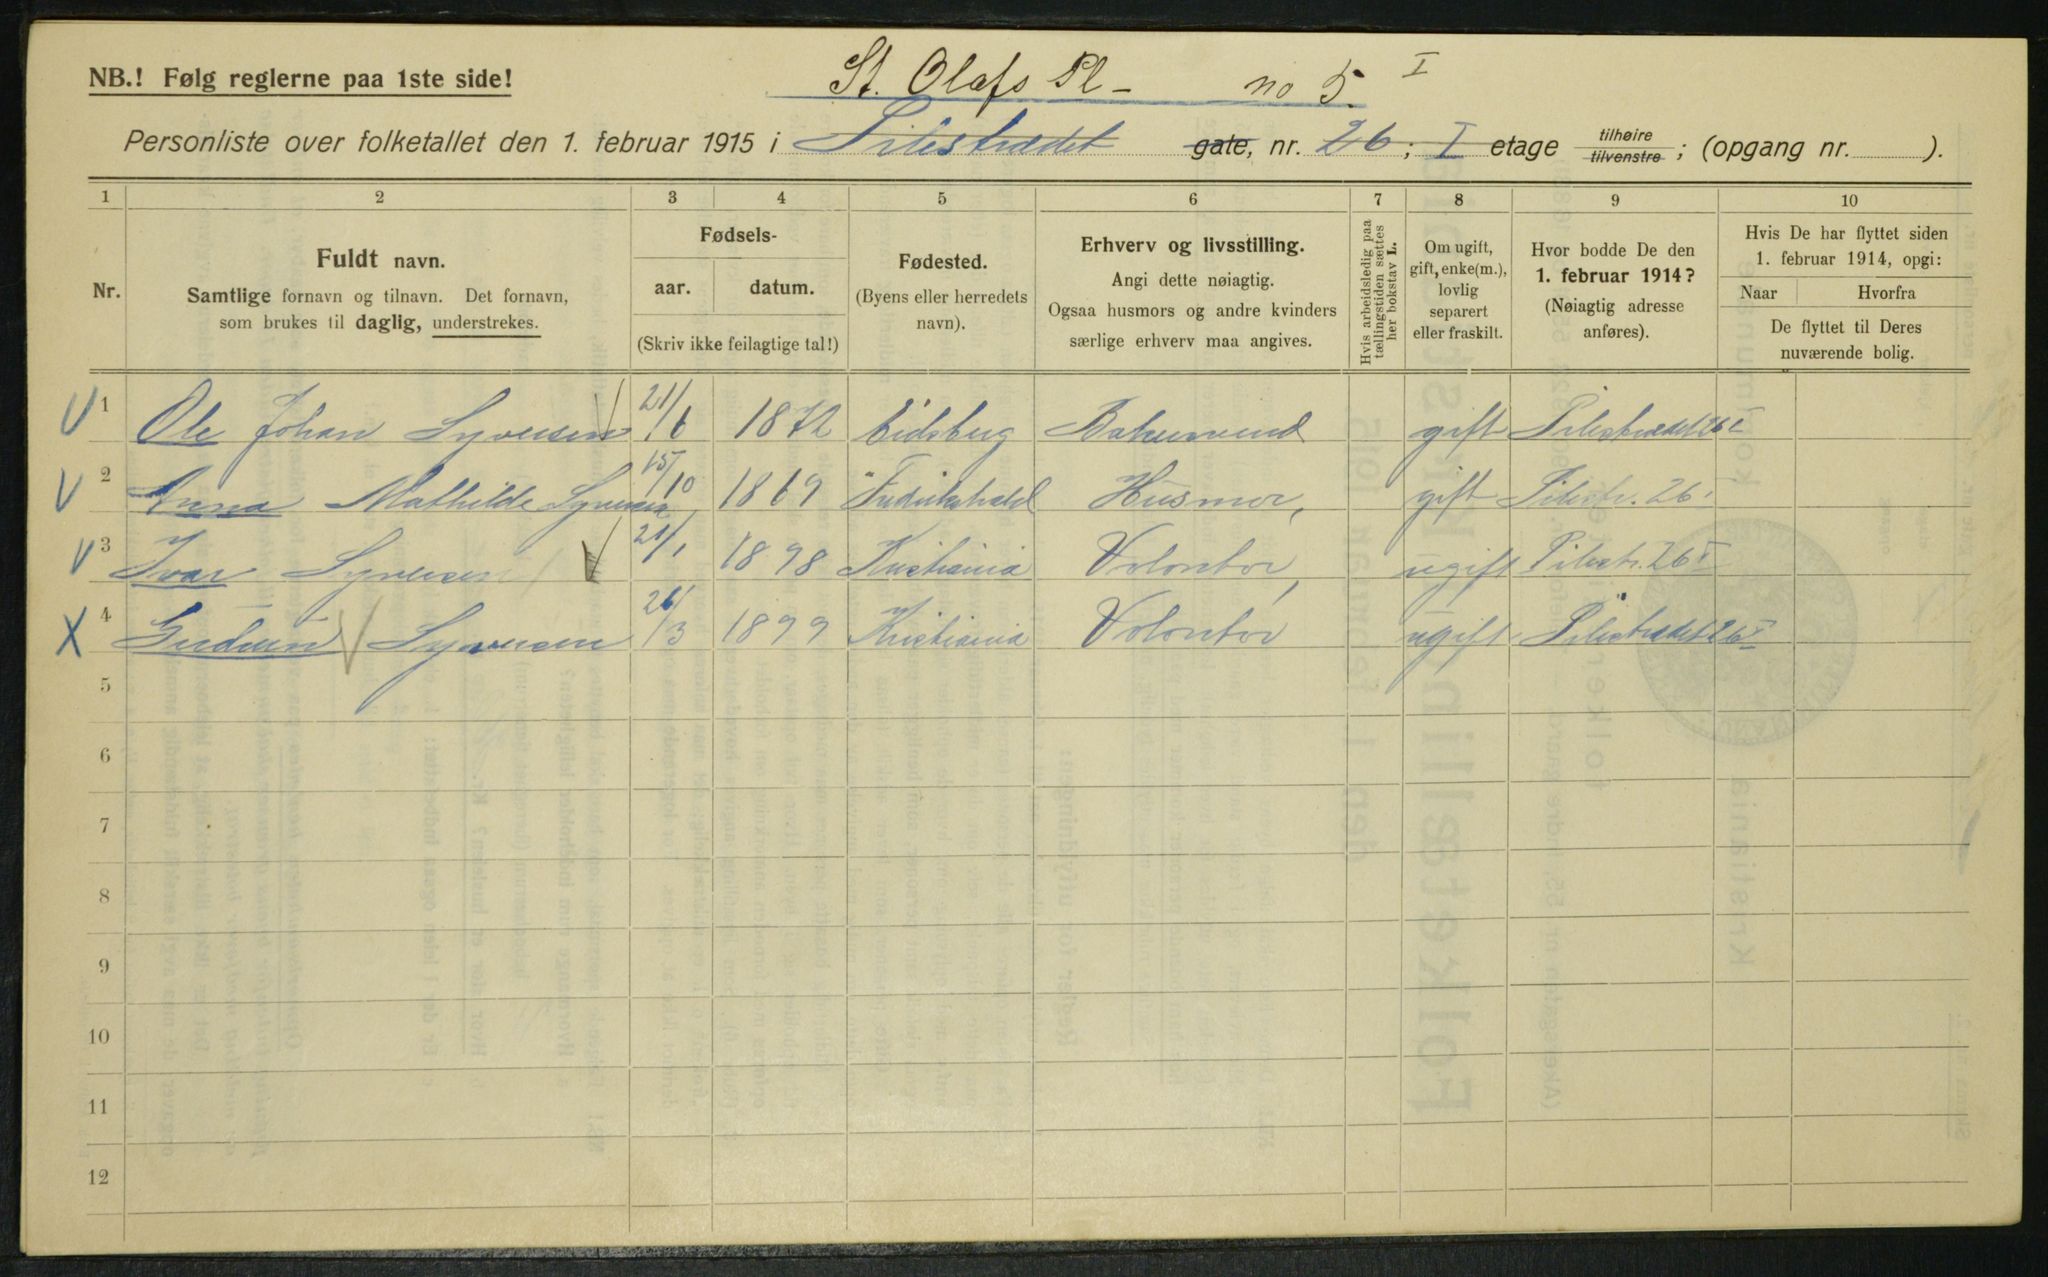 St. Olafs Pl – no 5. I
NB.! Følg reglerne paa 1ste side!
Personliste over folketallet den 1. februar 1915 i Pilestrædet gate, nr. 26; I etage tilhøire tilvenstre; (opgang nr. ).
1 2 3 4 5 6 7 8 9 10
Nr.
Fuldt navn.
Samtlige fornavn og tilnavn. Det fornavn,
som brukes til daglig, understrekes.
Fødsels-
aar. datum.
(Skriv ikke feilagtige tal!)
Fødested.
(Byens eller herredets
navn).
Erhverv og livsstilling.
Angi dette nøiagtig.
Ogsaa husmors og andre kvinders
særlige erhverv maa angives.
Hvis arbeidsledig paa
tællingstiden sættes
her bokstav L.
Om ugift,
gift, enke(m.),
lovlig
separert
eller fraskilt.
Hvor bodde De den
1. februar 1914?
(Nøiagtig adresse
anføres).
Hvis De har flyttet siden
1. februar 1914, opgi:
Naar Hvorfra
De flyttet til Deres
nuværende bolig.
V 1 Ole Johan Syversen 21/6 1872 Eidsberg gift Pilestrædet 26 I
V 2 Anna Mathilde Syversen 15/10 1869 Fredrikshald Husmor, gift Pilestr. 26 I
V 3 Ivar Syversen 21/1 1898 Kristiania Volontør, ugift Pilestr. 26 I
X 4 Gudrun Syversen 26/3 1899 Kristiania Volontør ugift Pilestrædet 26 I
5
6
7
8
9
10
11
12